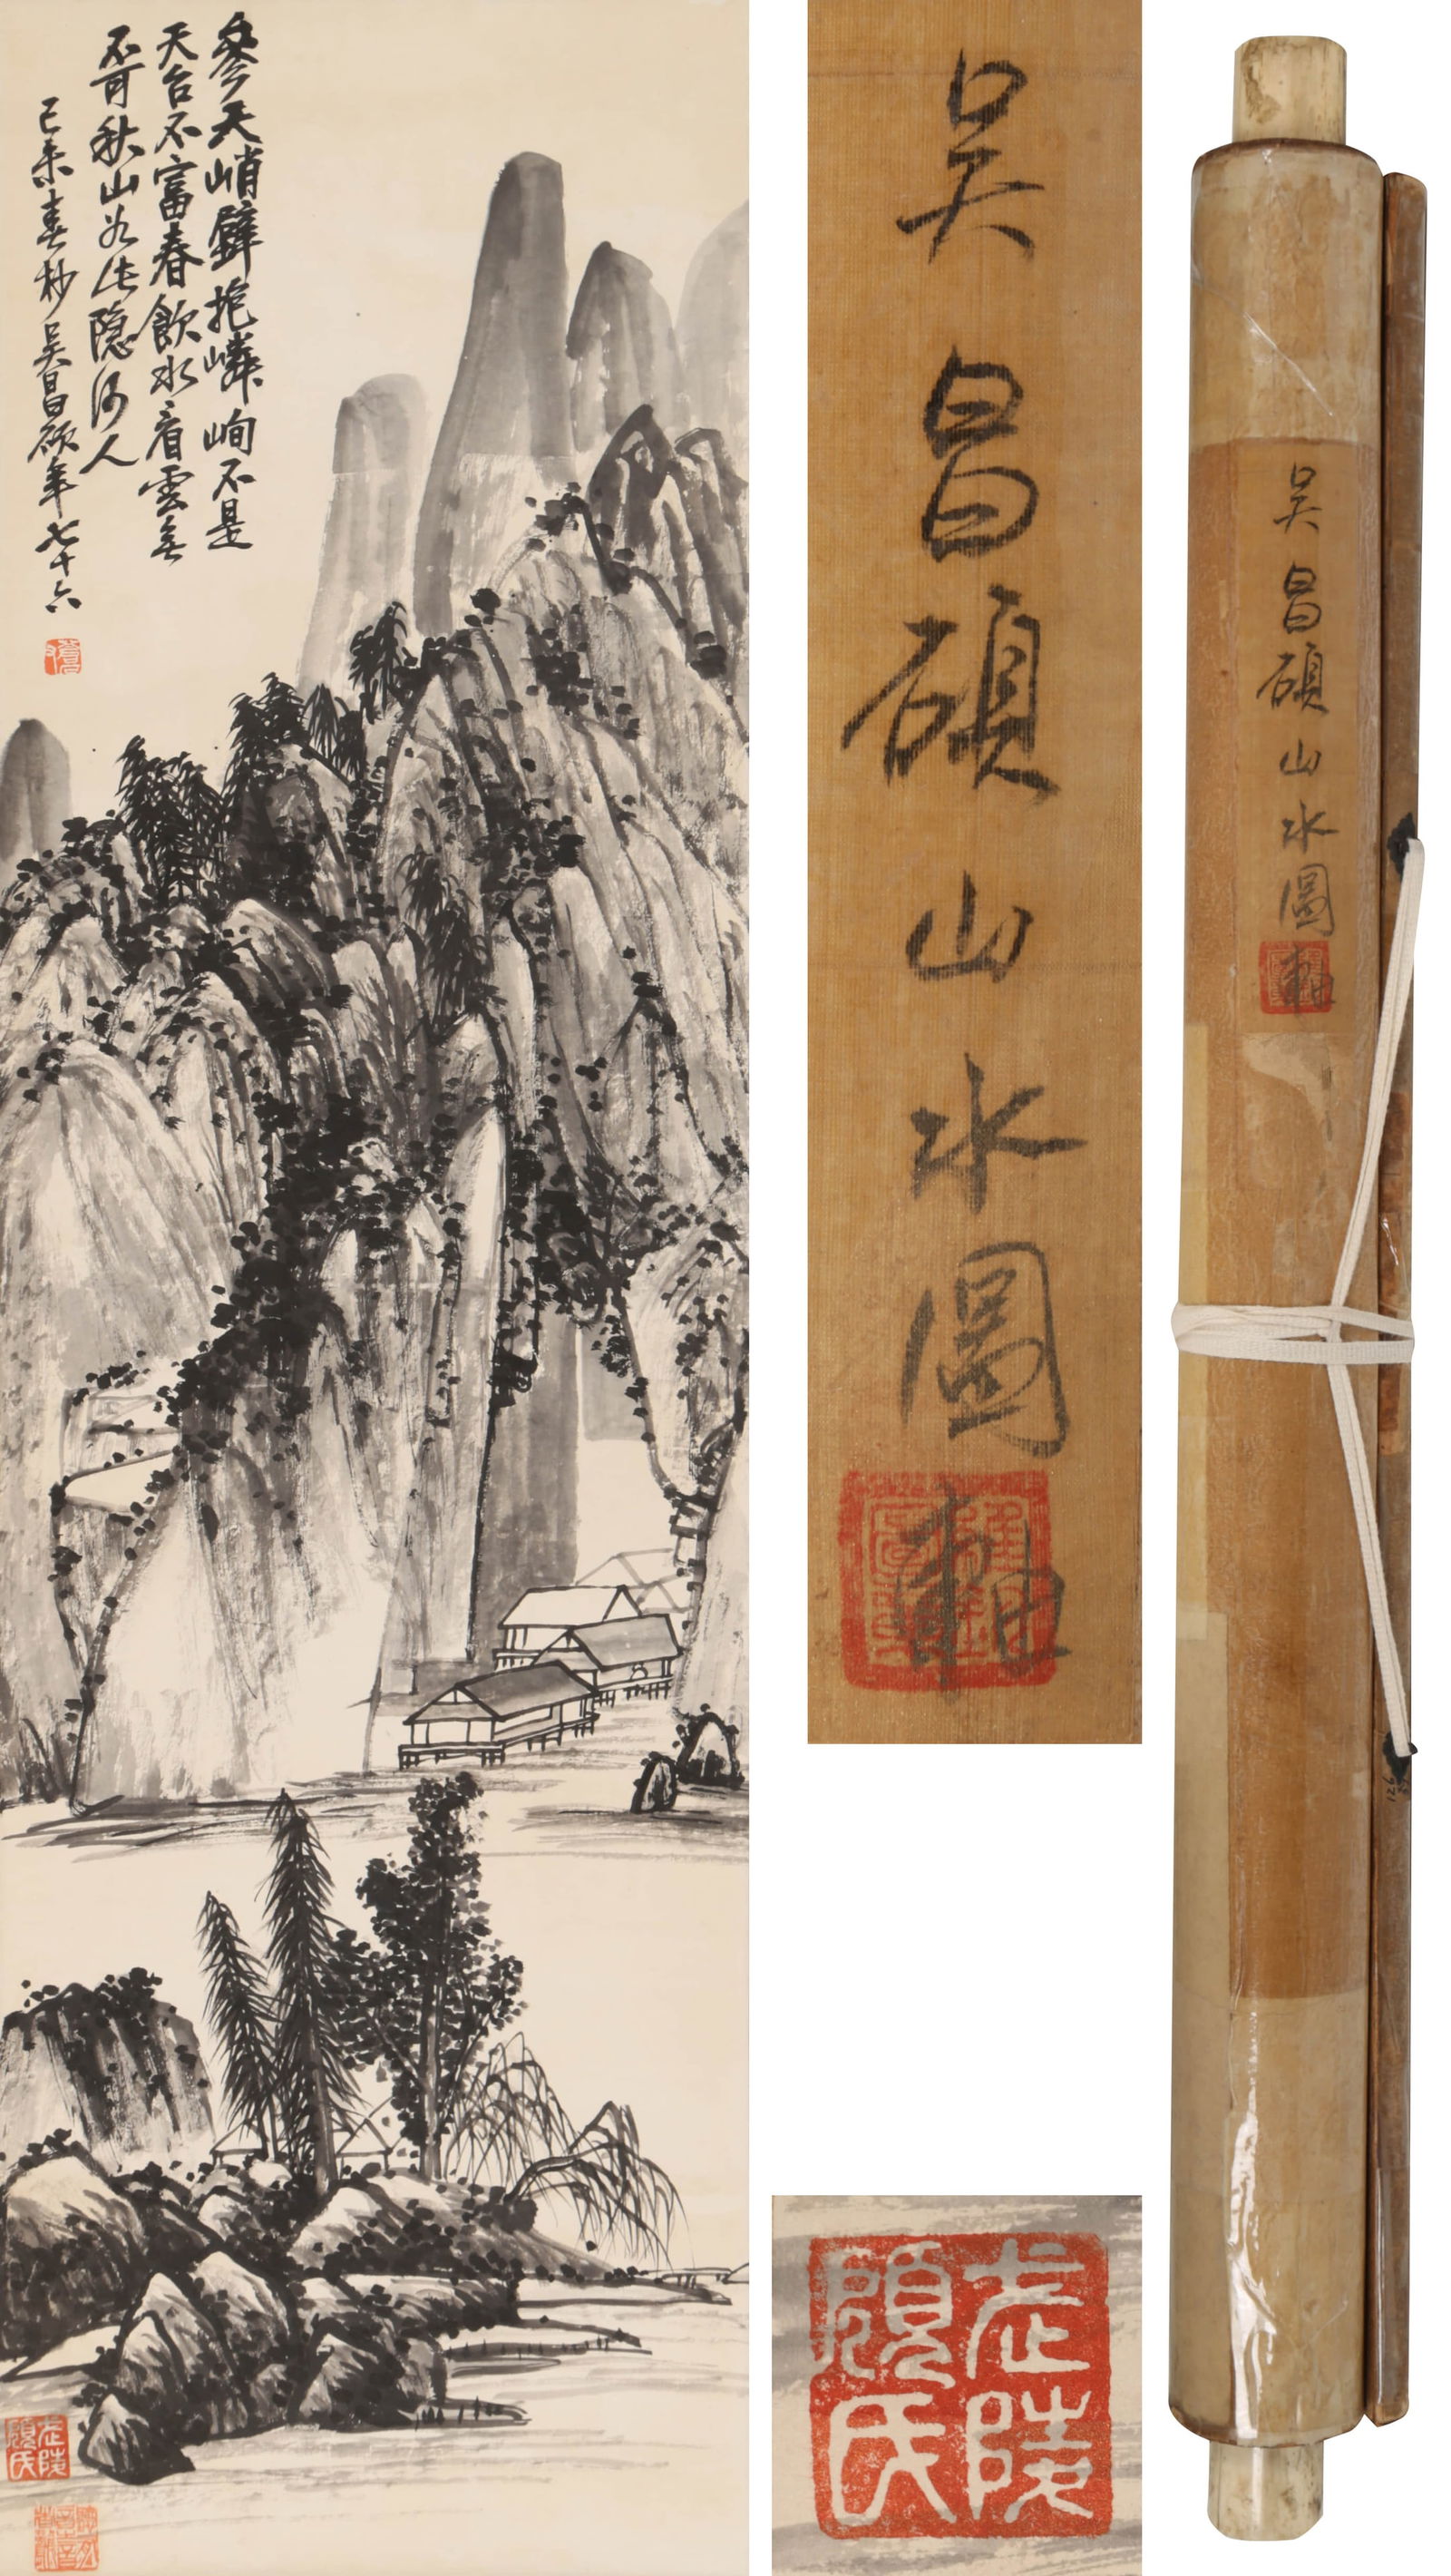 參天峭壁抱嶙峋不是
天台不富春飲水看雲無
不可秋山如此隱何人
己未春杪吳昌碩年七十六
武陵顧氏
吳昌碩山水圖軸
武陵顧氏
吳昌碩山水圖軸